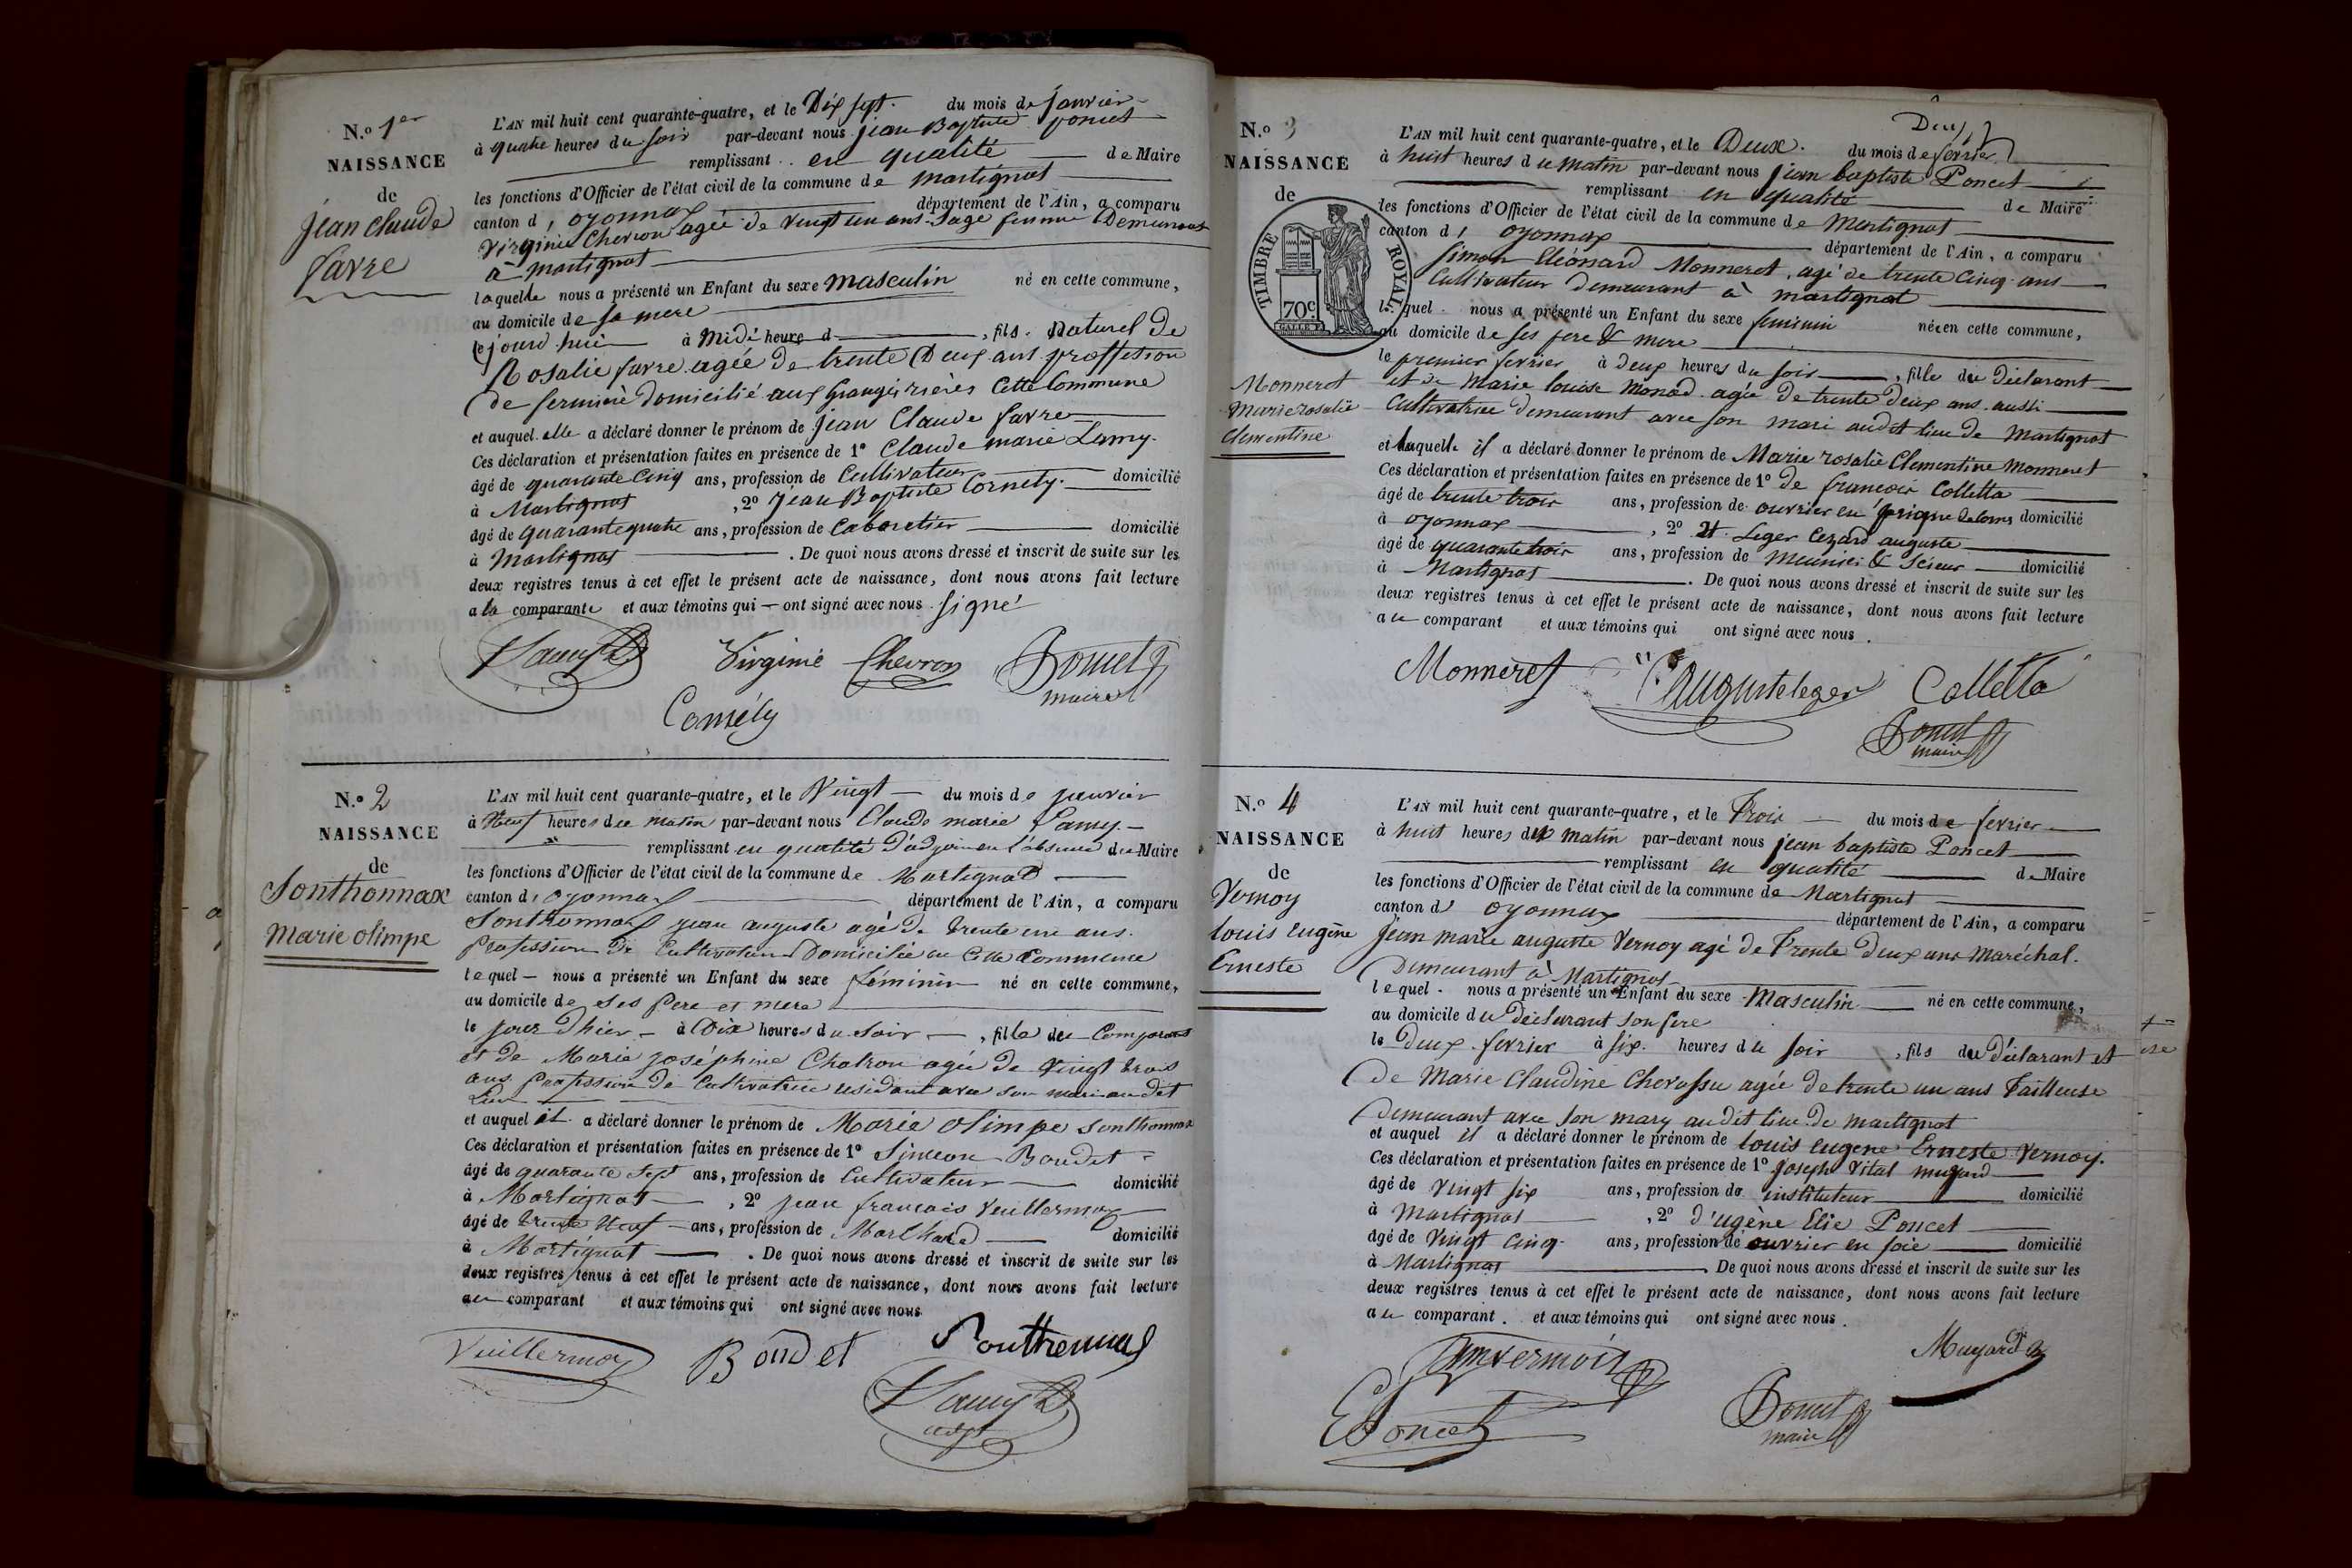 N.o 1er
NAISSANCE
de
jean claude
favre
L'AN mil huit cent quarante-quatre, et le Dix sept. du mois de janvier
à quatre heures du soir par-devant nous jean Baptiste poncet
remplissant en qualité de Maire
les fonctions d'Officier de l'état civil de la commune de Martignat
canton d' oyonnax département de l'Ain, a comparu
Virginie Chevron agée de vingt un ans Sage femme Demeurant
à Martignat
laquelle nous a présenté un Enfant du sexe masculin né en cette commune,
au domicile de sa mere
cejourd'hui à Midi heure d , fils naturel de
Rosalie favre agée de trente Deux ans proffession
de fermière domicilié aux Granges rières Cette Commune
et auquel elle a déclaré donner le prénom de jean Claude favre
Ces déclaration et présentation faites en présence de 1º Claude marie Lamy
âgé de quarante cinq ans, profession de Cultivateur domicilié
à Martignat , 2º jean Baptiste Cornely
âgé de quarante quatre ans, profession de Cabaretier domicilié
à Martignat . De quoi nous avons dressé et inscrit de suite sur les
deux registres tenus à cet effet le présent acte de naissance, dont nous avons fait lecture
a la comparante et aux témoins qui ont signé avec nous signé
Lamy Virginie Chevron Poncet
maire
Cornély
N.o 2
NAISSANCE
de
Sonthonnax
Marie olimpe
L'AN mil huit cent quarante-quatre, et le Vingt du mois de janvier
à Neuf heures du matin par-devant nous Claude marie Lamy
remplissant en qualité d'adjoin en l'absence du Maire
les fonctions d'Officier de l'état civil de la commune de Martignat
canton d' oyonnax département de l'Ain, a comparu
Sonthonnax jean auguste agé de trente un ans
profession de Cultivateur Domicilié en Cette Commune
lequel nous a présenté un Enfant du sexe féminin né en cette commune,
au domicile de ses pere et mere
le jour d'hier à Dix heures du soir , fille du Comparant
et de Marie joséphine Chatron agée de vingt trois
ans profession de Cultivatrice residant avec son mari audit
Lieu
et auquel il a déclaré donner le prénom de Marie olimpe sonthonnax
Ces déclaration et présentation faites en présence de 1º Simeon Boudet
âgé de quarante sept ans, profession de Cultivateur domicilié
à Martignat , 2º jean francois Vuillermoz
âgé de trente Neuf ans, profession de Marchand domicilié
à Martignat . De quoi nous avons dressé et inscrit de suite sur les
deux registres tenus à cet effet le présent acte de naissance, dont nous avons fait lecture
au comparant et aux témoins qui ont signé avec nous
Vuillermoz Boudet Sonthonnax
Lamy
adjt
N.o 3
NAISSANCE
de
TIMBRE ROYAL
70c
Monneret
Marie rosalie
Clementine
Deux
L'AN mil huit cent quarante-quatre, et le Deux. du mois de fevrier
à huit heures du matin par-devant nous jean baptiste Poncet
remplissant en qualité de Maire
les fonctions d'Officier de l'état civil de la commune de Martignat
canton d' oyonnax département de l'Ain, a comparu
Simon Eléonard Monneret, agé de trente Cinq ans
Cultivateur demeurant à martignat
lequel nous a présenté un Enfant du sexe feminin née en cette commune,
au domicile de ses pere & mere
le premier fevrier à deux heures du soir , fille du Déclarant
et de Marie louise Monod agée De trente deux ans aussi
Cultivatrice demeurant avec son mari audit lieu de Martignat
et laquelle il a déclaré donner le prénom de Marie rosalie Clementine Monneret
Ces déclaration et présentation faites en présence de 1º De francois Colletta
âgé de trente trois ans, profession de ouvrier en domicilié
à oyonnax , 2º Leger Cezard auguste
âgé de quarante trois ans, profession de meunier & Scieur domicilié
à Martignat . De quoi nous avons dressé et inscrit de suite sur les
deux registres tenus à cet effet le présent acte de naissance, dont nous avons fait lecture
au comparant et aux témoins qui ont signé avec nous.
Monneret augusteleger Colletta
Poncet
maire
N.o 4
NAISSANCE
de
Vernoy
louis Eugène
Erneste
L'AN mil huit cent quarante-quatre, et le Trois du mois de fevrier
à huit heures du matin par-devant nous jean baptiste Poncet
remplissant en qualité de Maire
les fonctions d'Officier de l'état civil de la commune de Martignat
canton d' oyonnax département de l'Ain, a comparu
jean marie auguste Vernoy agé de Trente deux ans Maréchal.
Demeurant à Martignat
lequel nous a présenté un Enfant du sexe Masculin né en cette commune,
au domicile du Déclarant son pere
le Deux fevrier à six heures du soir , fils du Déclarant et
de Marie Claudine Chevassu agée de trente un ans Tailleuse
Demeurant avec son mary audit lieu de martignat
et auquel il a déclaré donner le prénom de louis eugene Erneste Vernoy.
Ces déclaration et présentation faites en présence de 1º joseph Vital mugard
âgé de vingt six ans, profession de instituteur domicilié
à Martignat , 2º d'ugène Elie Poncet
âgé de vingt cinq ans, profession de ouvrier en soie domicilié
à Martignat . De quoi nous avons dressé et inscrit de suite sur les
deux registres tenus à cet effet le présent acte de naissance, dont nous avons fait lecture
au comparant. et aux témoins qui ont signé avec nous.
Mugard
EPoncet Poncet
maire